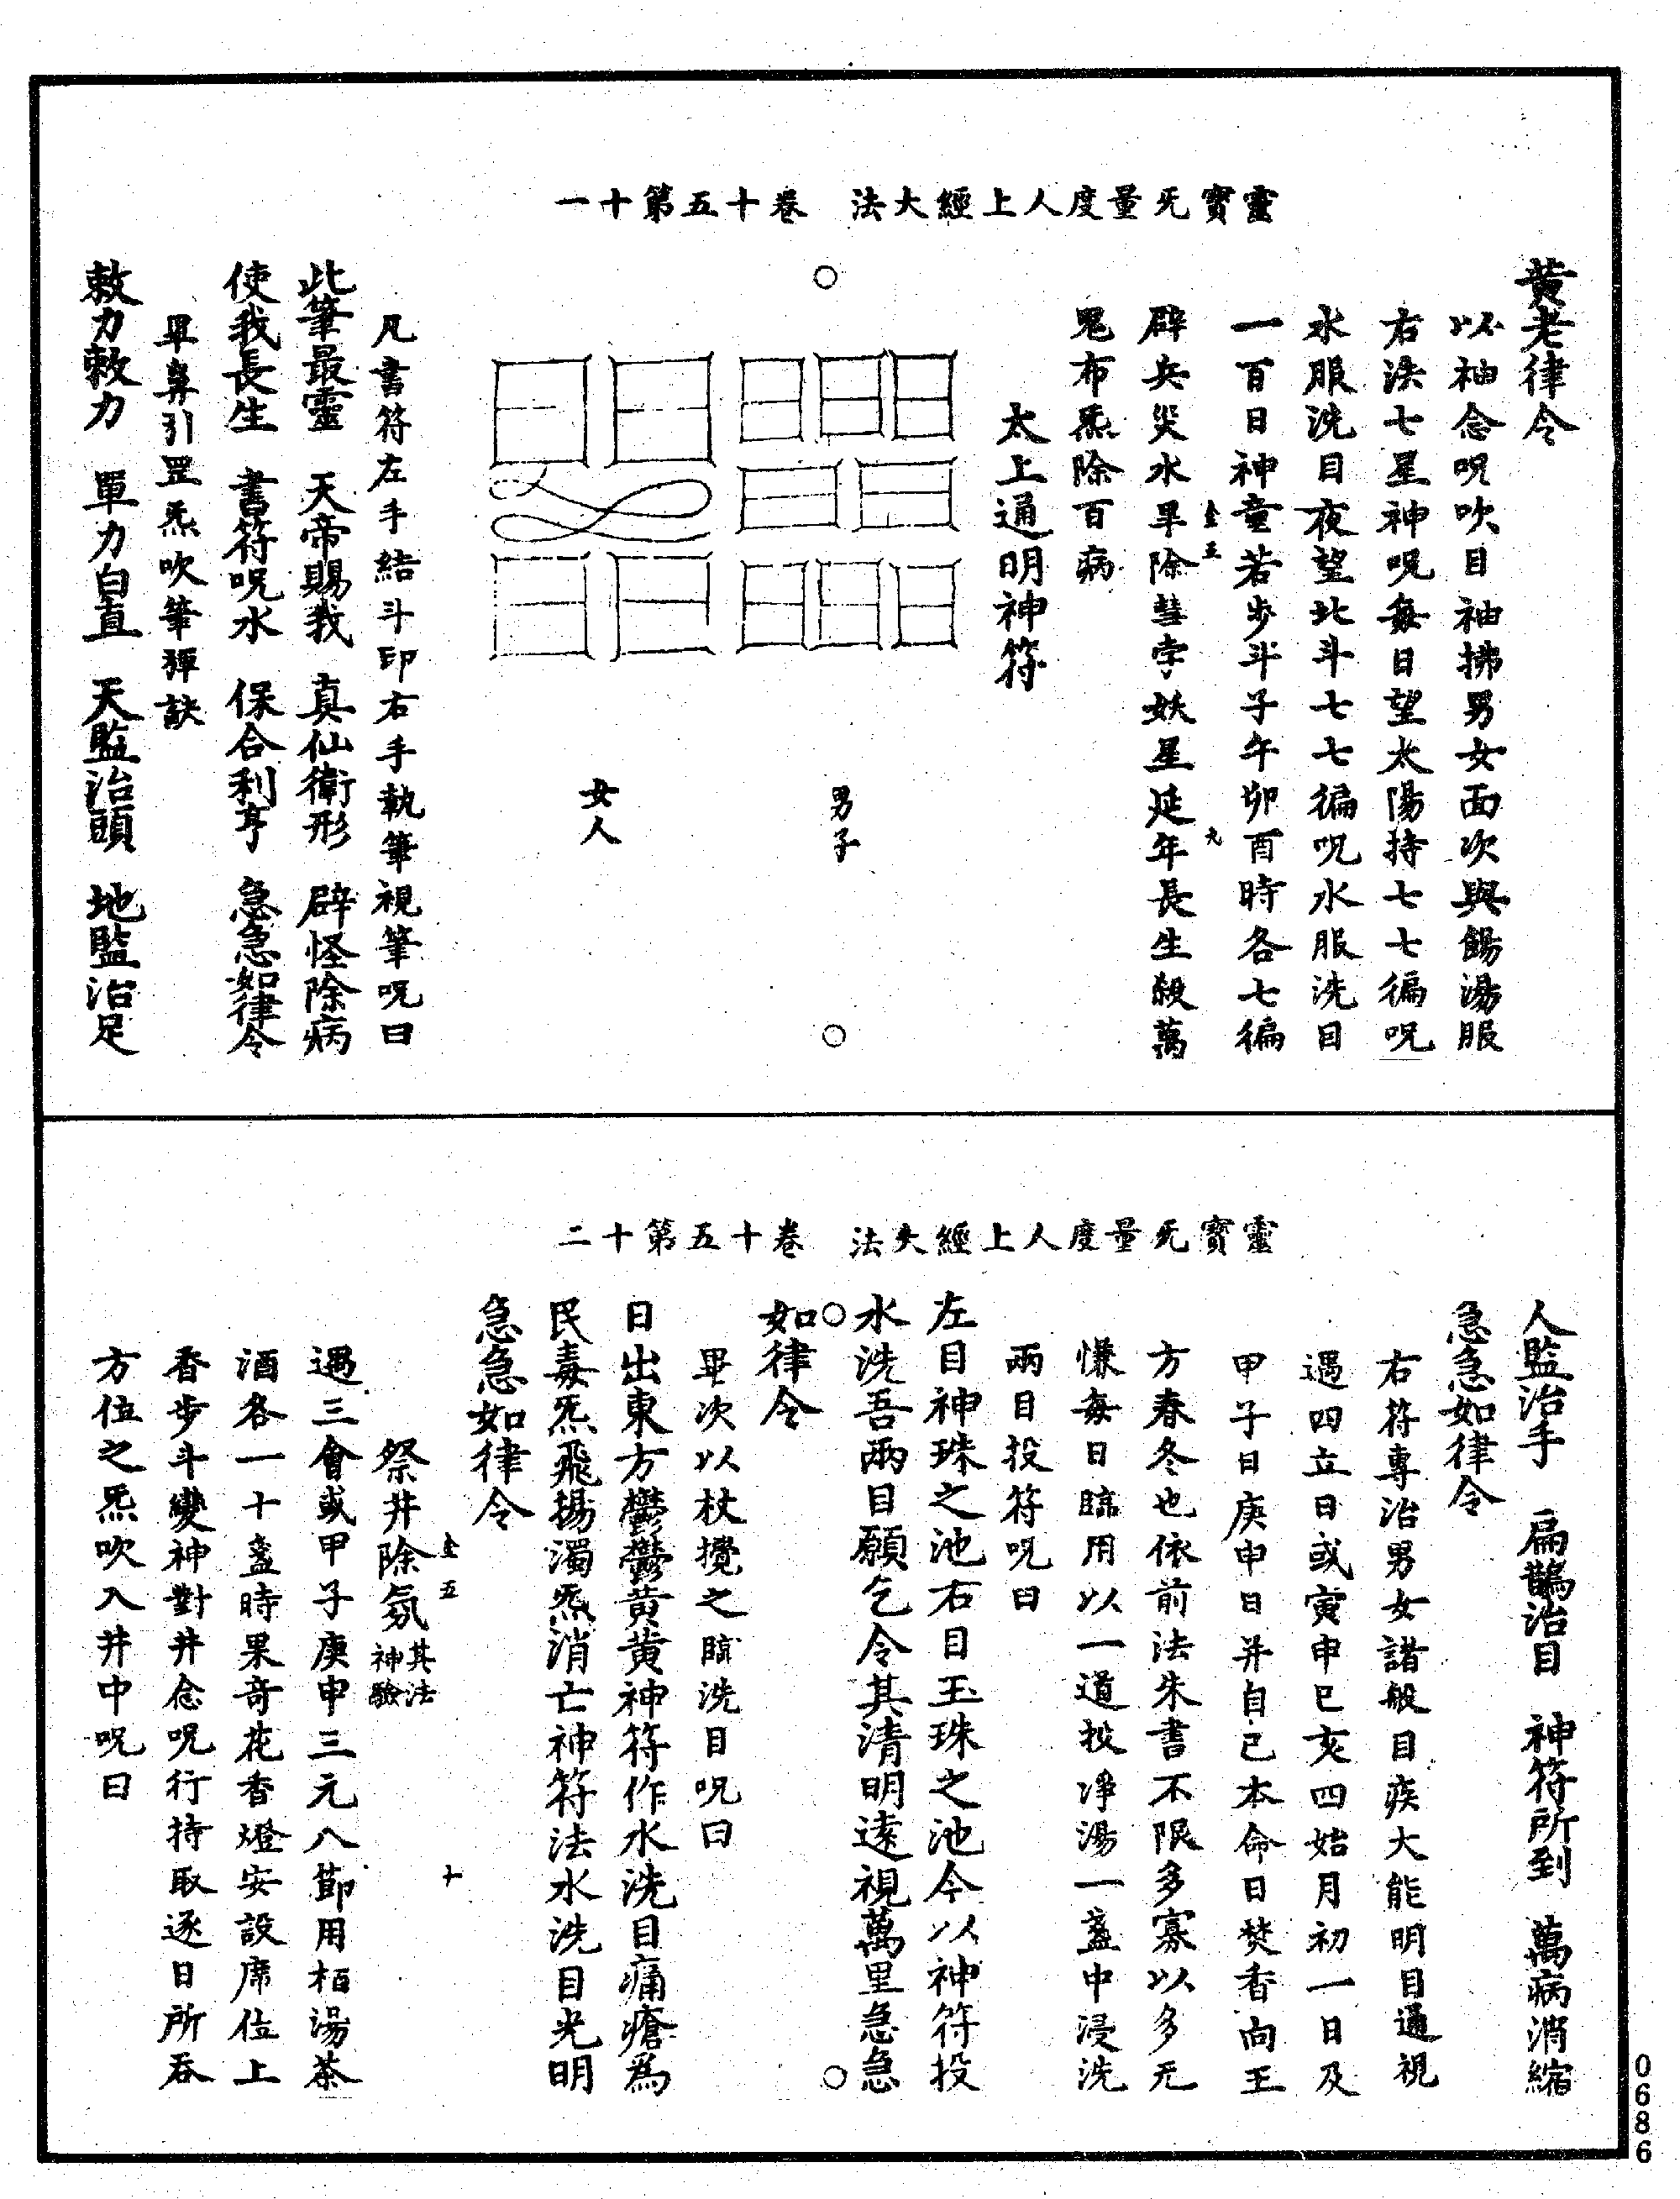 靈寶无量度人上經大法　卷十五第十一
黄老律令
以袖念呪吹目袖拂男女面次與餳湯服
右法七星神呪每日望太陽持七七徧呪
水服洗目夜望北斗七七徧呪水服洗目
一百日神童若步斗子午卯酉時各七徧
金五　九
辟兵災水旱除彗孛妖星延年長生殺萬
鬼布炁除百病
太上通明神符
男子
女人
凡書符左手結斗印右手執筆視筆呪曰
此筆最靈　天帝賜我　真仙衛形　辟怪除病
使我長生　書符呪水　保合利亨　急急如律令
畢鼻引罡炁吹筆揮訣
敕力敕力　單力自直　天監治頭　地監治足
靈寶无量度人上經大法　卷十五第十二
人監治手　扁鵲治目　神符所到　萬病消縮
急急如律令
右符專治男女諸般目疾大能明目通視
遇四立日或寅申巳亥四始月初一日及
甲子日庚申日并自己本命日焚香向王
方春冬也依前法朱書不限多寡以多无
慊每日臨用以一道投淨湯一盞中浸洗
兩目投符呪曰
左目神珠之池右目玉珠之池今以神符投
水洗吾兩目願乞令其清明遠視萬里急急
如律令
畢次以杖攪之臨洗目呪曰
日出東方鬱鬱黄黄神符作水洗目痛瘡為
民毒炁飛揚濁炁消亡神符法水洗目光明
急急如律令
金五　十
祭井除氛其法神驗
遇三會或甲子庚申三元八節用栢湯茶
酒各一十盞時果奇花香燈安設席位上
香步斗變神對井念呪行持取逐日所吞
方位之炁吹入井中呪曰
0686